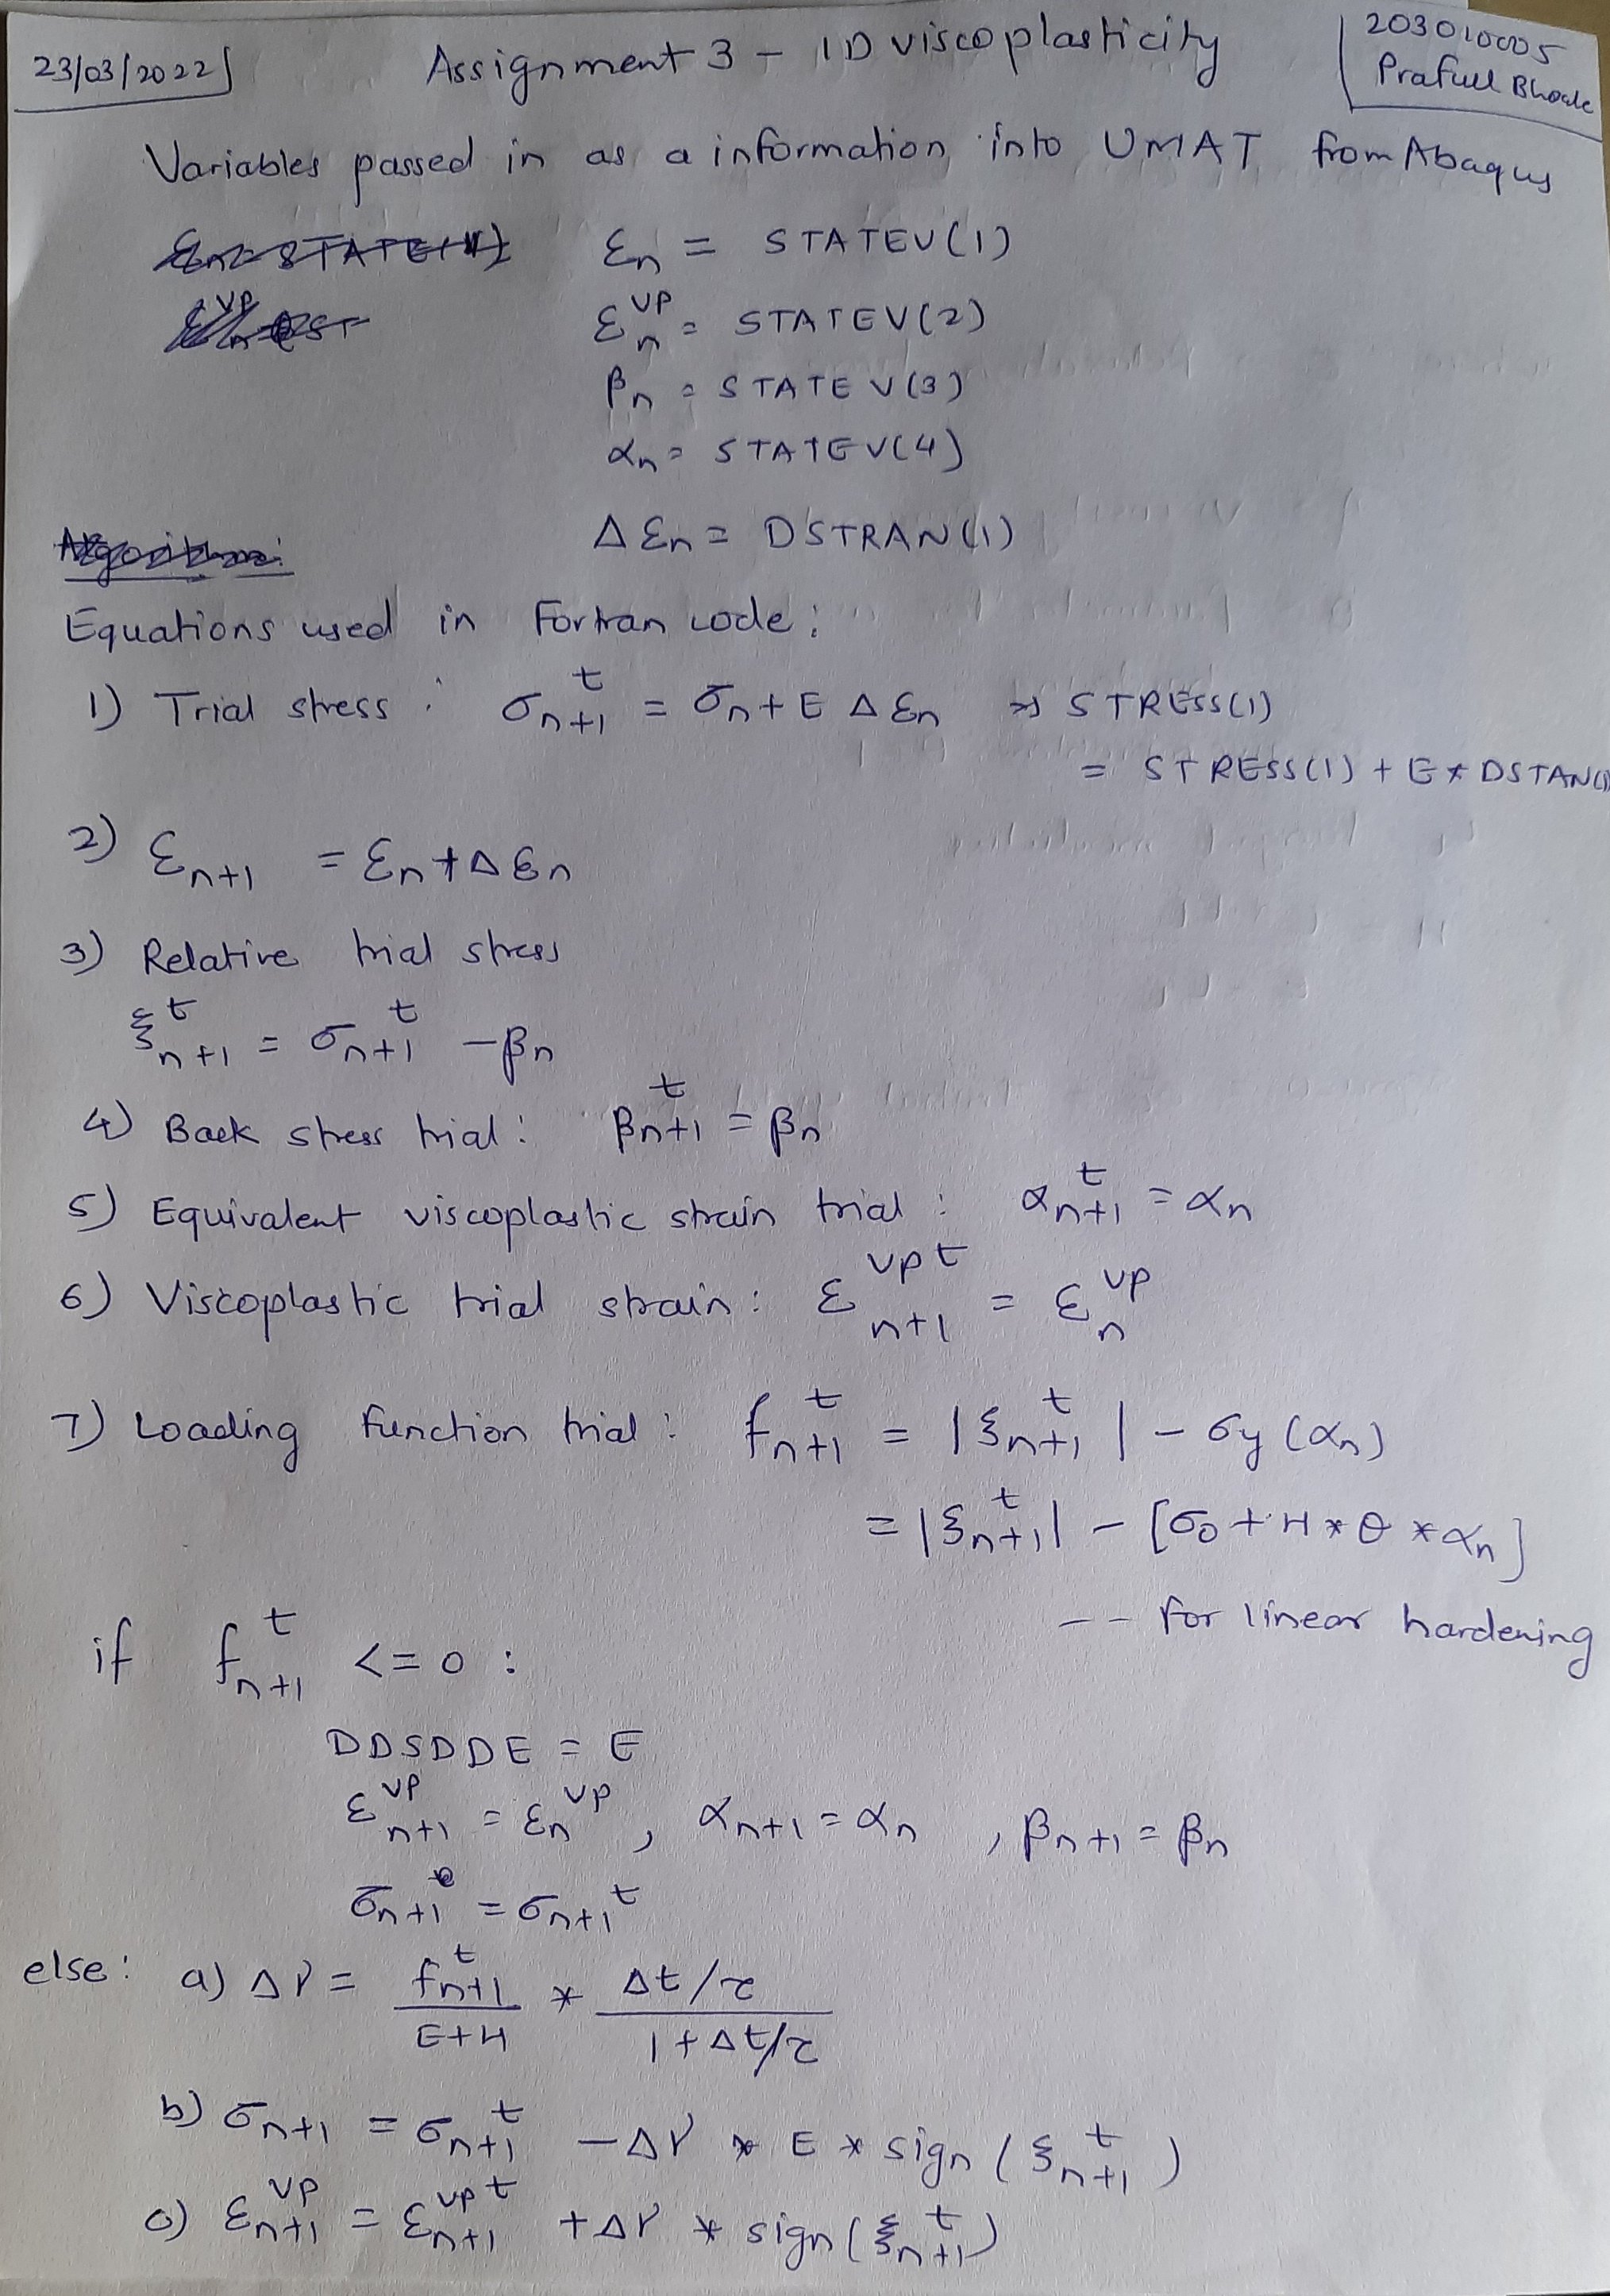 23/03/2022
Assignment 3 - 1D viscoplasticity
203010005
Prafull Bhosle
Variables passed in as a information into UMAT from Abaqus
εn = STATEV(1)
εn^vp = STATEV(2)
βn = STATEV(3)
αn = STATEV(4)
Δεn = DSTRAN(1)
Equations used in Fortran code:
1) Trial stress : σn+1^t = σn + E Δεn ⇒ STRESS(1)
= STRESS(1) + E * DSTAN(1)
2) εn+1 = εn + Δεn
3) Relative trial stress
ξn+1^t = σn+1^t - βn
4) Back stress trial : βn+1^t = βn
5) Equivalent viscoplastic strain trial : αn+1^t = αn
6) Viscoplastic trial strain : εn+1^vpt = εn^vp
7) Loading function trial : fn+1^t = |ξn+1^t| - σy(αn)
= |ξn+1^t| - [σ0 + H * θ * αn]
-- for linear hardening
if fn+1^t <= 0 :
DDSDDE = E
εn+1^vp = εn^vp , αn+1 = αn , βn+1 = βn
σn+1 = σn+1^t
else : a) Δγ = fn+1^t / (E+H) * (Δt/τ) / (1+Δt/τ)
b) σn+1 = σn+1^t - Δγ * E * sign(ξn+1^t)
c) εn+1^vp = εn+1^vpt + Δγ * sign(ξn+1^t)